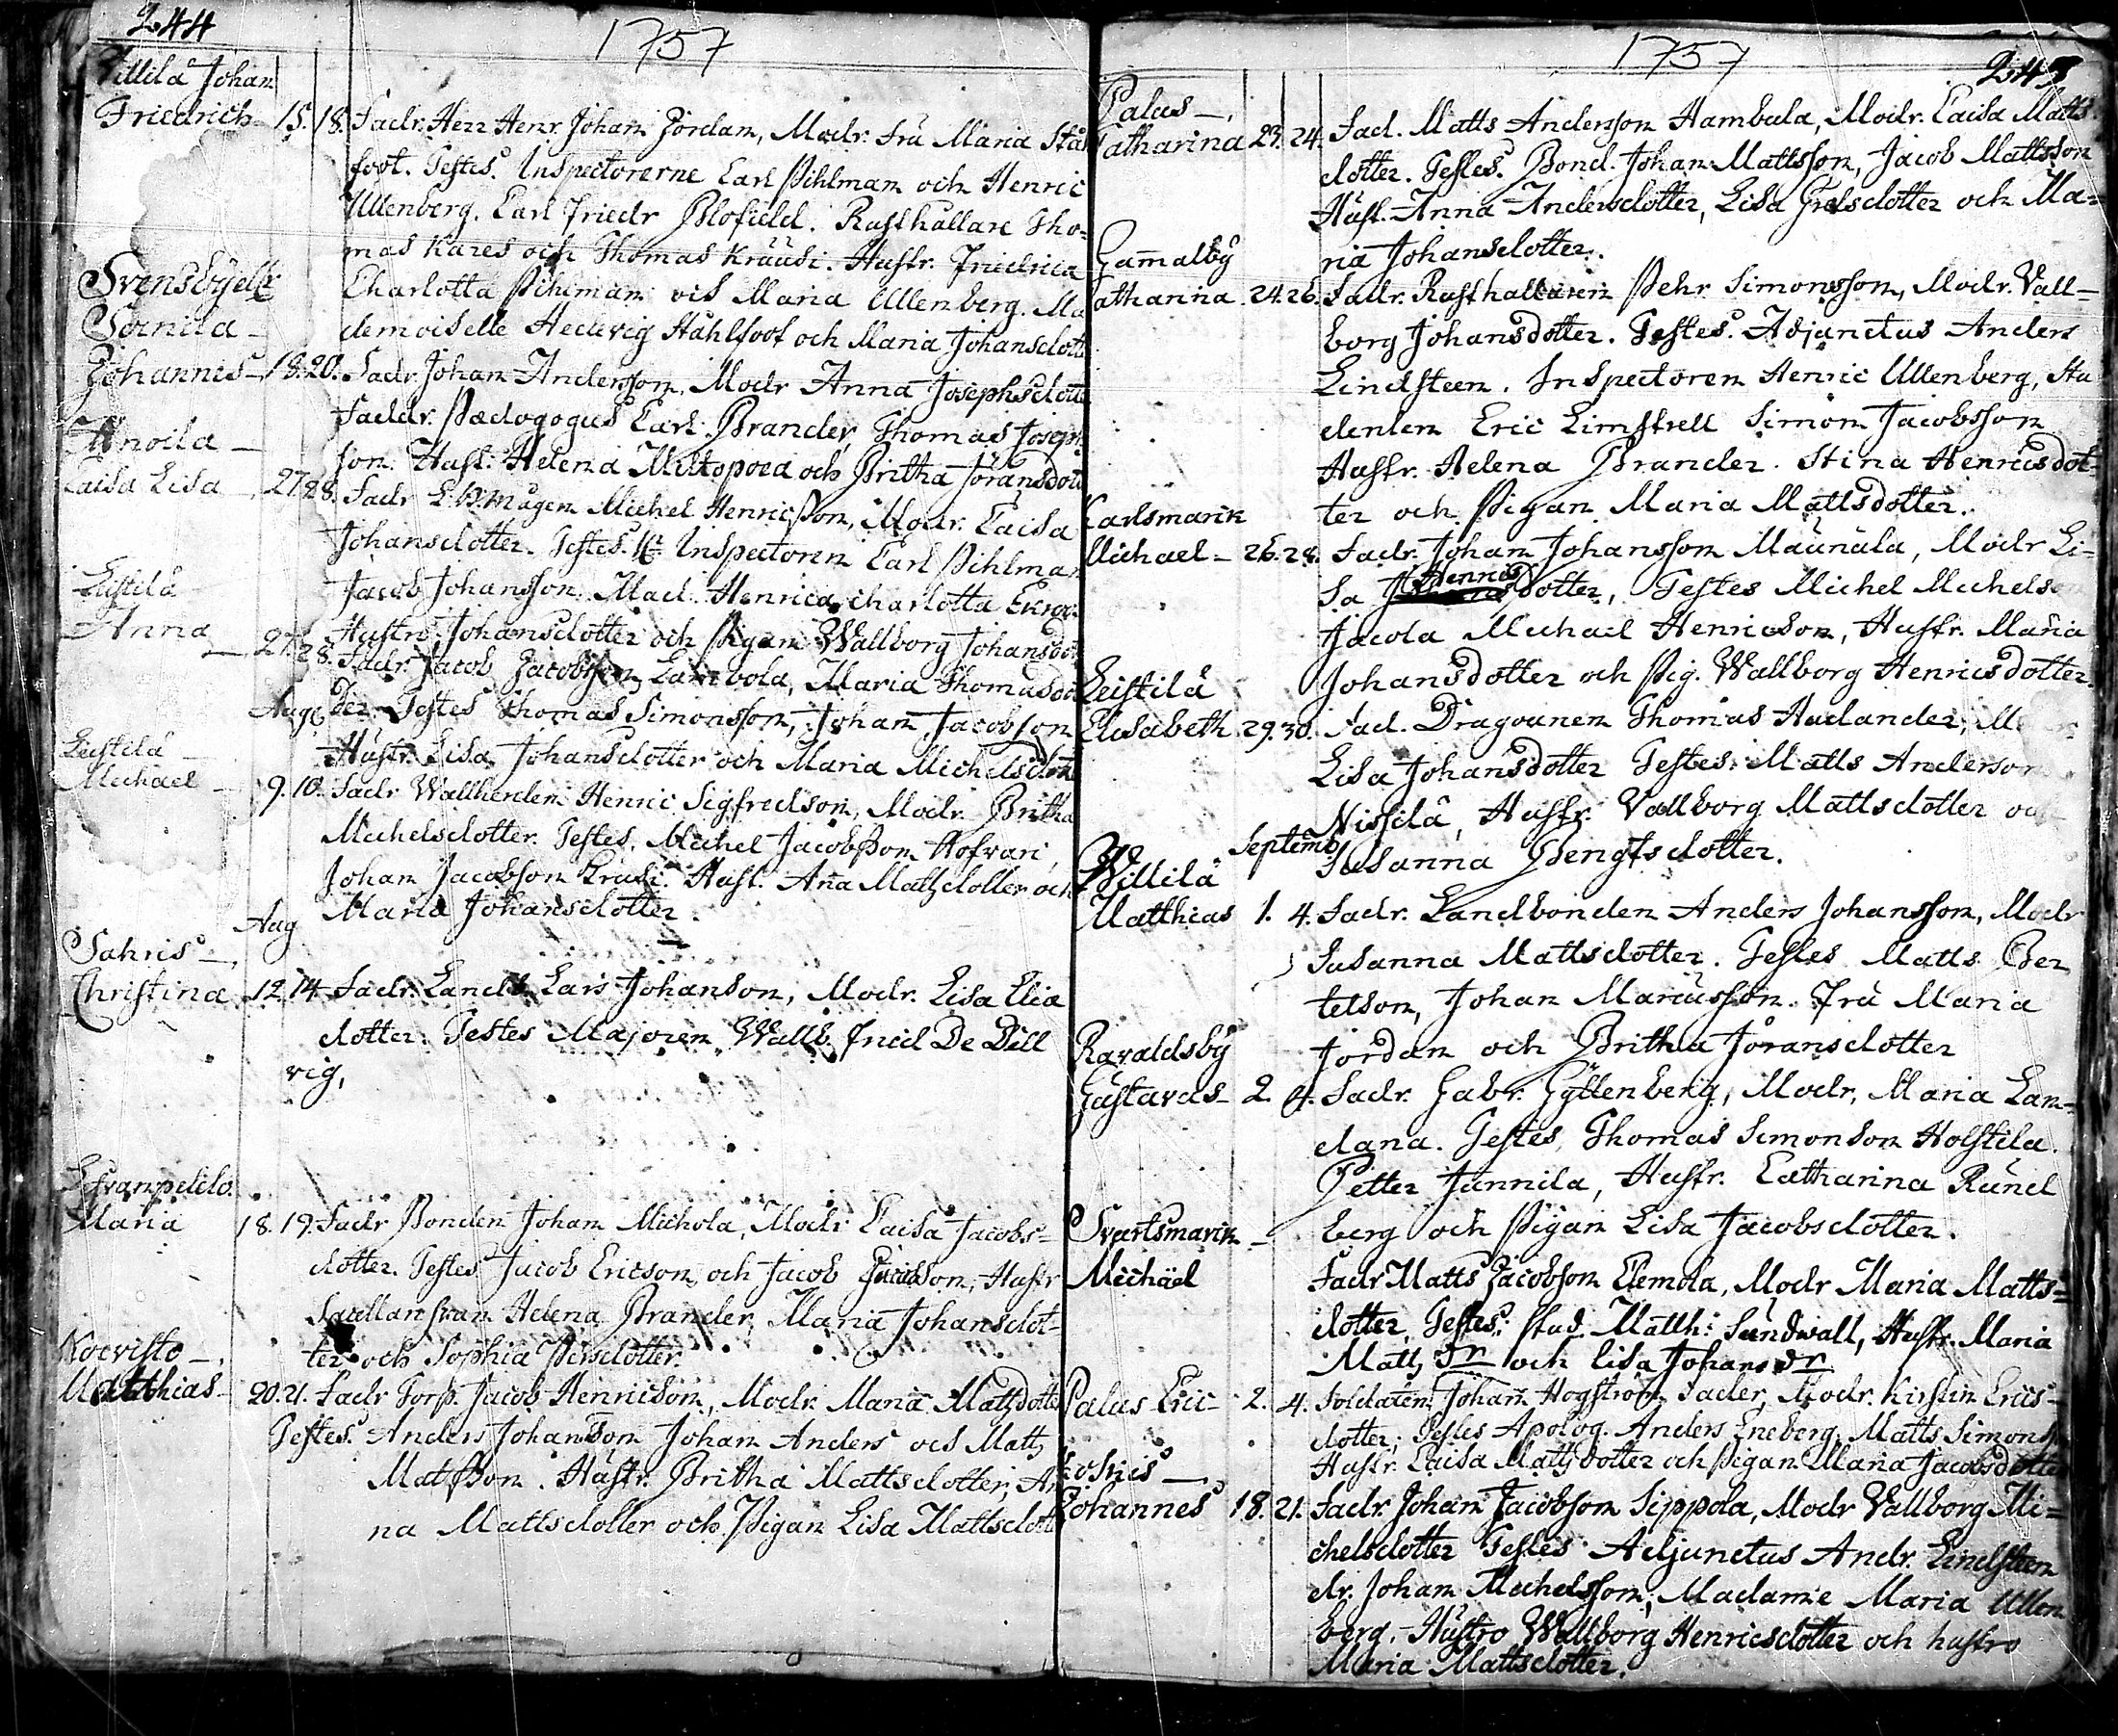 244
1757
Villilä Johan
Friedrich 15. 18. Fadr. Herr Henr. Johan Jordan, Modr. Fru Maria Stål
foot. Testes. Inspectorerne Carl Pihlman och Henric
Ullenberg. Carl Friedr Blofield. Rusthållare Tho=
mas Kares och Thomas Krausi. Hustr. Friedrica
Charlotta Pihlman och Maria Ullenberg. Ma
demoiselle Hedevig Ståhlfoot och Maria Johansdott
Svensbÿ
Sonnila
Johannes 18. 20. Fadr Johan Andersson, Modr Anna Josephsdott
Faddr. Pædogogus Carl Brander, Thomas Joseph
son. Hust. Helena Mustapoea och Britha Jöransdott
Anoila
Caisa Lisa 27. 28. Fadr Michel Henricsson, Modr. Caisa
Johansdotter. Testes. Inspectoren Carl Pihlman
Jacob Johansson. Mad. Henrica Charlotta
Hustro Johansdotter och Pigan Wallborg Johansdot
Leistilä
Anna 27. 28. Fadr. Jacob Jacobsson Lambola, Maria Thomasdo
ter. Testes Thomas Simonsson, Johan Jacobson
Hustr. Lisa Johansdotter och Maria Michelsdott
Aug
Leistilä
Michael 9. 10. Fadr Wallherden Henric Sigfredson, Modr. Britha
Michelsdotter. Testes. Michel Jacobsson Hofvari,
Johan Jacobson Krusi. Hust. Anna Matzdotter och
Maria Johansdotter.
Aug
Sahris
Christina 12. 14 Fadr. Landb Lars Johanson, Modr. Lisa Elia
dotter. Testes Majoren Wallb. Fried De Dell
vig,
Maria 18. 19. Fadr Bonden Johan Michola, Modr Caisa Jacobs=
dotter. Testes Jacob Ericson, och Jacob Jacobson, Hustr
Helena Brander, Maria Johansdot-
ter och Sophia Persdotter.
Koevisto
Matthias 20. 21. Fadr Torp. Jacob Henricson, Modr. Maria Matzdotte
Testes. Anders Johansson Johan Anders och Matz
Matsson. Hustr. Britha Mattsdotter, An
na Mattsdotter och Pigan Lisa Mattsdott
1757
245
Palus
Catharina 23. 24. Fad. Matts Andersson Hambula, Modr. Caisa Matts
dotter. Testes. Bond. Johan Mattsson, Jacob Mattsson
Hust. Anna Andersdotter, Lisa Grelsdotter och Ma=
ria Johansdotter.
Gammalbÿ
Catharina 24. 26. Fadr. Rusthallaren Pehr Simonsson, Modr. Vall-
borg Johansdotter. Testes. Adjunctus Anders
Lindsteen. Inspectoren Henric Ullenberg, Stu
denten Eric Limstrell Simon Jacobsson
Hustr. Helena Brander. Stina Henricsdot-
ter och Pigan Maria Mattsdotter.
Karlsmarik
Michael 26. 28. Fadr. Johan Johansson Maunula, Modr Li-
sa Henricsdotter, Testes Michel Michelson
Jacola Michael Henricson, Hustr. Maria
Johansdotter och Pig. Wallborg Henricsdotter.
Leistilä
Elisabeth 29. 30. Fad. Dragounen Thomas Aulander, M
Lisa Johansdotter Testes. Matts Anderson
Nissilä, Hustr. Vallborg Mattsdotter och
Susanna Bengtsdotter.
Septemb
Villilä
Matthias 1. 4. Fadr. Landbonden Anders Johansson, Modr
Susanna Mattsdotter. Testes Matts Ber
telson, Johan Marcusson. Fru Maria
Jordan och Britha Jöransdotter
Ravaldsbÿ
Gustavus 2. 4. Fadr. Gabr. Gyllenberg, Modr, Maria Lan-
dana. Testes, Thomas Simonson Holstila.
Petter Junnila, Hustr. Catharina Rund
berg och Pigan Lisa Jacobsdotter.
Svartsmarik
Michäel Fadr Matts Jacobson Clemola, Modr Maria Matts=
dotter, Testes: Stud. Matth: Sundwall, Hustr. Maria
Matz dr och Lisa Johans dr
Palus Eric 2. 4. Soldaten Johan Hogström Fader, Modr. Kirstin Erics-
dotter; Testes Apolog. Anders Eneberg, Matts Simons
Hustr. Caisa Matzdotter och Pigan Maria Jacobsdotter
Johannes 18. 21. Fadr. Johan Jacobson Sippola, Modr Vallborg Mi=
chelsdotter Testes Adjunctus Andr. Lindsteen
dr. Johan Michelsson, Madame Maria Ullen
berg. Hustro Wallborg Henricsdotter och hustro
Maria Mattsdotter.